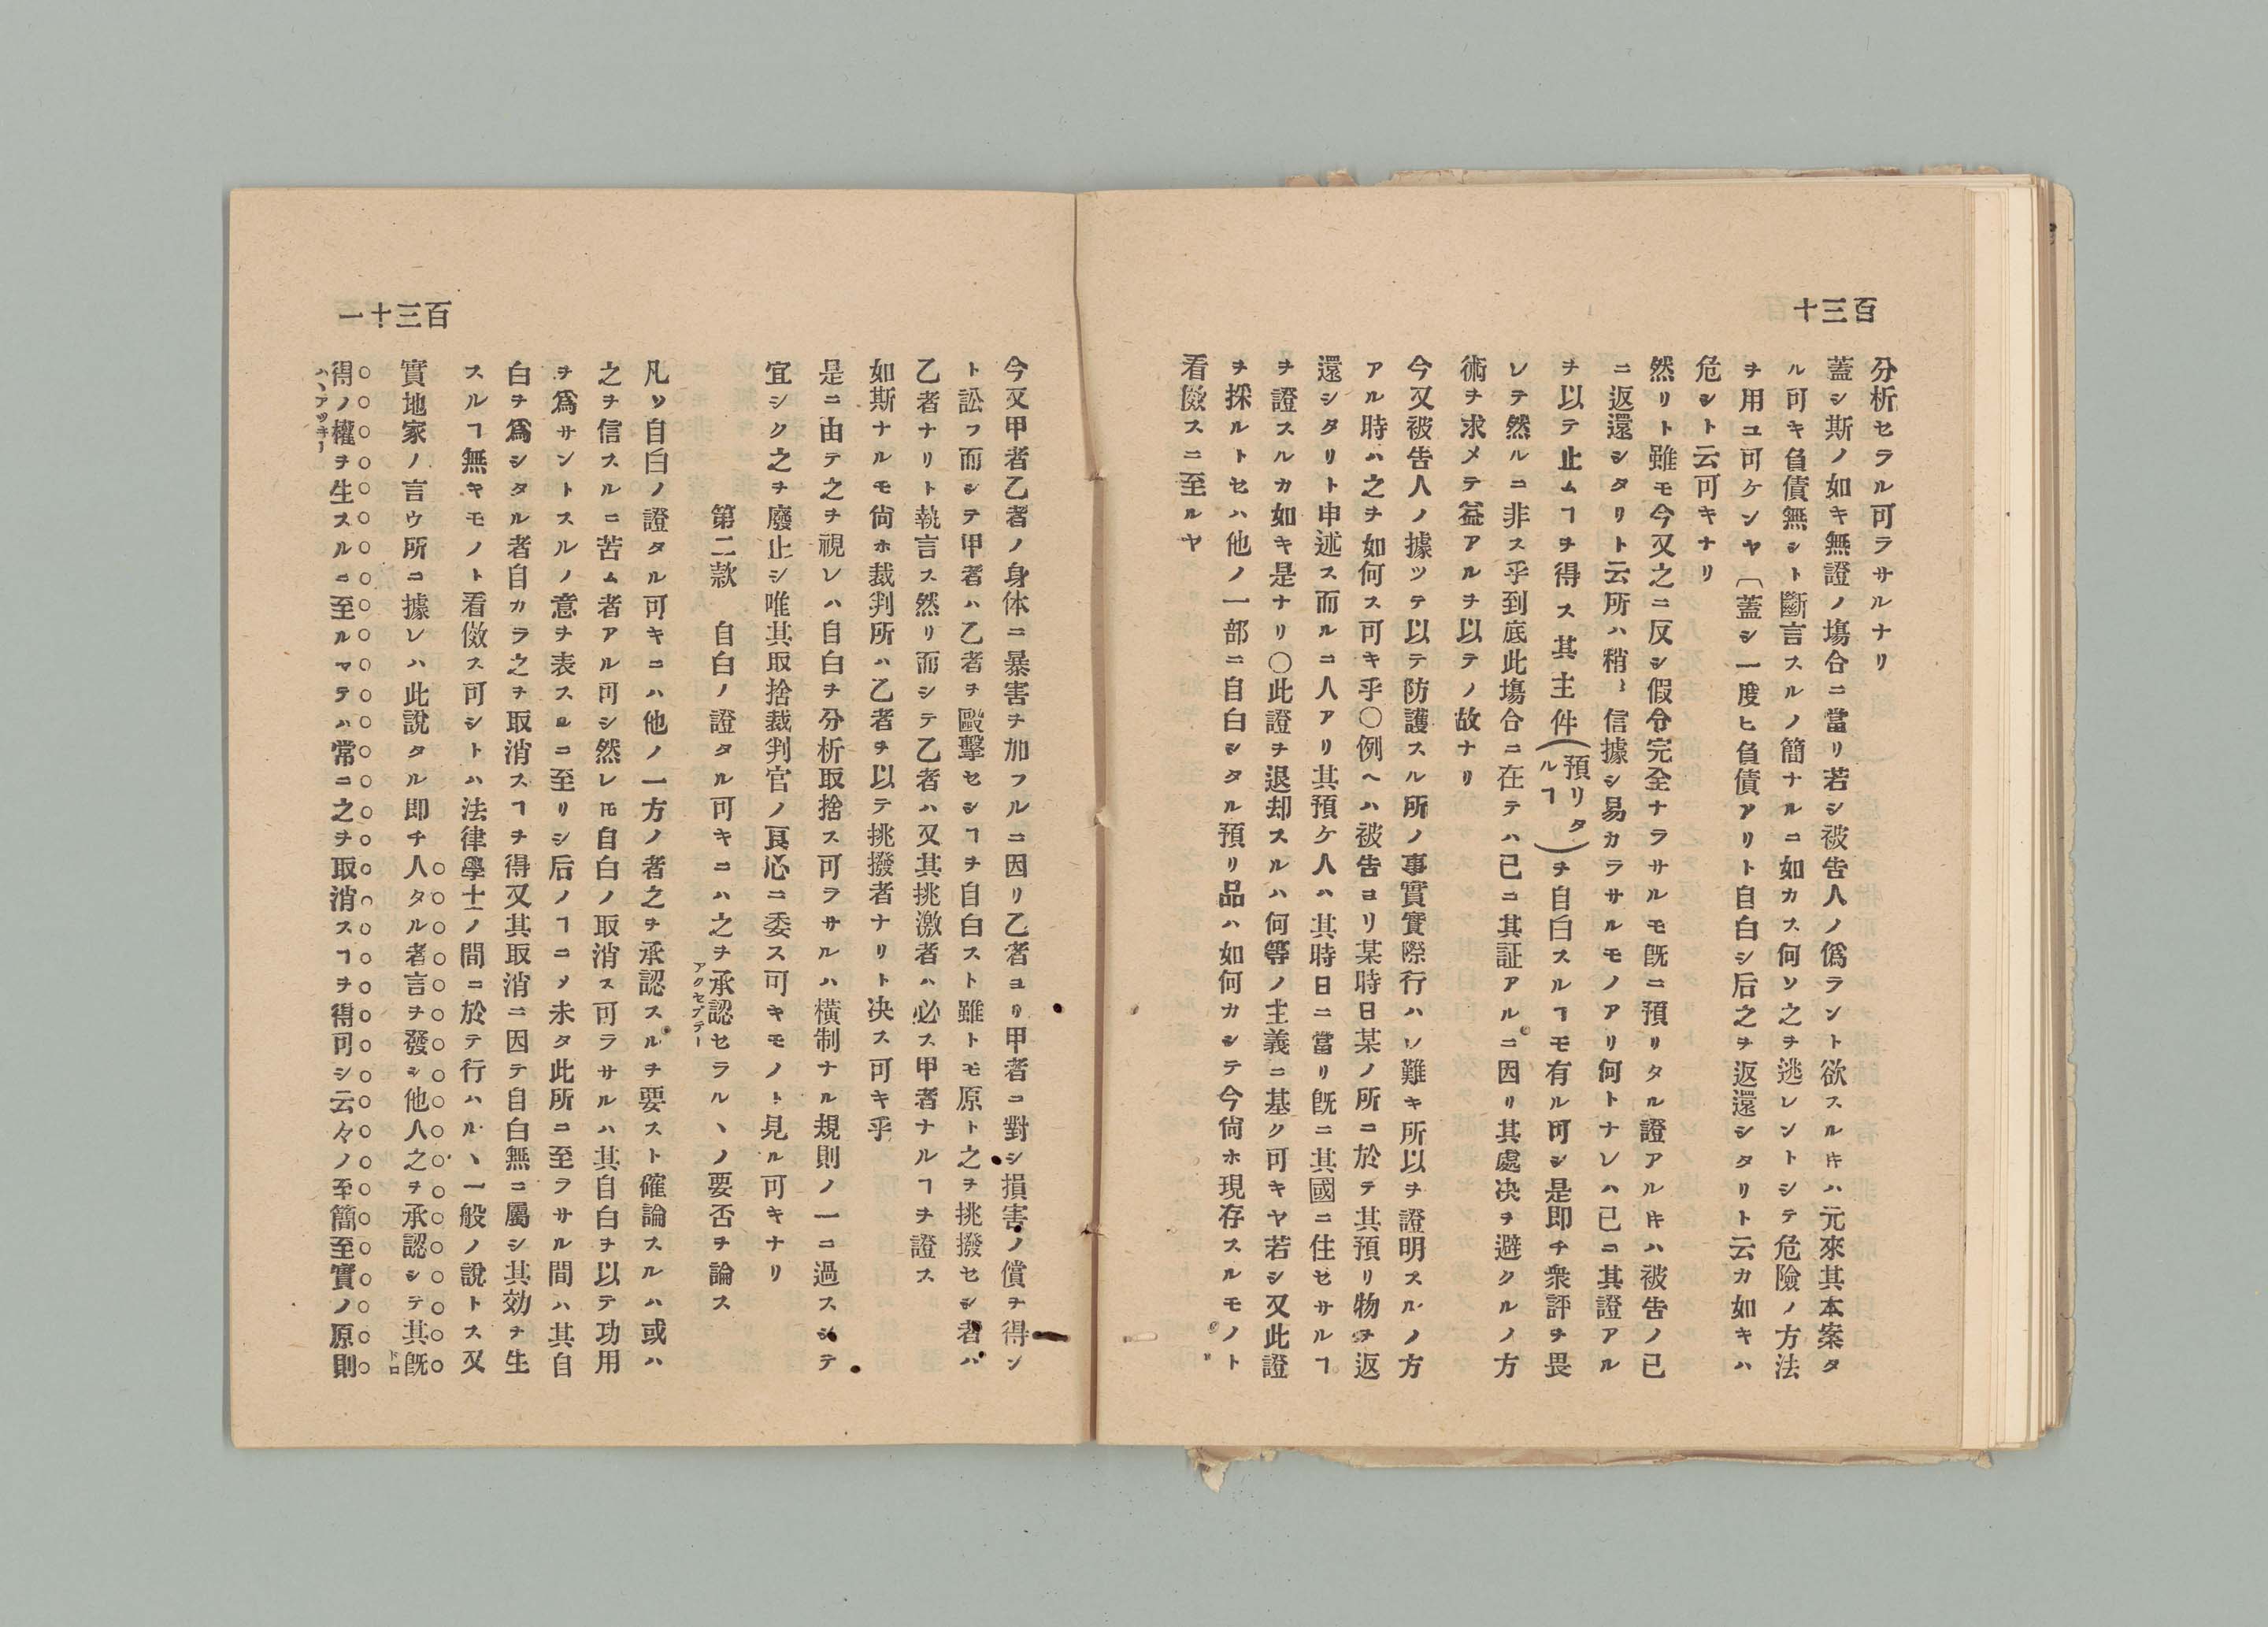 百三十
分析セラル可ラサルナリ
蓋シ斯ノ如キ無證ノ塲合ニ當リ若シ被告人ノ僞ラント欲スル𪜈ハ元來其本案タ
ル可キ負債無シト斷言スルノ簡ナルニ如カス何ソ之ヲ逃レントシテ危險ノ方法
ヲ用ユ可ケンヤ〔蓋シ一度ヒ負債アリト自白シ后之ヲ返還シタリト云カ如キハ
危シト云可キナリ
然リト雖モ今又之ニ反シ假令完全ナラサルモ旣ニ預リタル證アル𪜈ハ被告ノ已
ニ返還シタリト云所ハ稍〻信據シ易カラサルモノアリ何トナレハ已ニ其證アル
ヲ以テ止ムヿヲ得ス其主件(預リタルヿ)ヲ自白スルヿモ有ル可シ是即チ衆評ヲ畏
レテ然ルニ非ス乎到底此塲合ニ在テハ已ニ其証アルニ因リ其處决ヲ避クルノ方
術ヲ求メテ益アルヲ以テノ故ナリ
今又被告人ノ據ツテ以テ防護スル所ノ事實實際行ハレ難キ所以ヲ證明スルノ方
アル時ハ之ヲ如何ス可キ乎〇例ヘハ被告ヨリ某時日某ノ所ニ於テ其預リ物ヲ返
還シタリト申述ス而ルニ人アリ其預ケ人ハ其時日ニ當リ旣ニ其國ニ住セサルヿ
ヲ證スルカ如キ是ナリ〇此證ヲ退却スルハ何等ノ主義ニ基ク可キヤ若シ又此證
ヲ採ルトセハ他ノ一部ニ自白シタル預リ品ハ如何カシテ今尙ホ現存スルモノト
看倣スニ至ルヤ
百三十一
今又甲者乙者ノ身体ニ暴害ヲ加フルニ因リ乙者ヨリ甲者ニ對シ損害ノ償ヲ得ン
ト訟フ而シテ甲者ハ乙者ヲ毆擊セシヿヲ自白スト雖トモ原ト之ヲ挑撥セシ者ハ
乙者ナリト執言ス然リ而シテ乙者ハ又其挑激者ハ必ス甲者ナルヿヲ證ス
如斯ナルモ尙ホ裁判所ハ乙者ヲ以テ挑撥者ナリト决ス可キ乎
是ニ由テ之ヲ視レハ自白ヲ分析取捨ス可ラサルハ橫制ナル規則ノ一ニ過スシテ
宜シク之ヲ廢止シ唯其取捨裁判官ノ良心ニ委ス可キモノト見ル可キナリ
第二款　自白ノ證タル可キニハ之ヲ承認セラルヽノ要否ヲ論ス
アクセプテー
凡ソ自白ノ證タル可キニハ他ノ一方ノ者之ヲ承認スルヲ要スト確論スルハ或ハ
之ヲ信スルニ苦ム者アル可シ然レ𪜈自白ノ取消ス可ラサルハ其自白ヲ以テ功用
ヲ爲サントスルノ意ヲ表スルニ至リシ后ノヿニソ未タ此所ニ至ラサル間ハ其自
白ヲ爲シタル者自カラ之ヲ取消スヿヲ得又其取消ニ因テ自白無ニ屬シ其効ヲ生
スルヿ無キモノト看倣ス可シトハ法律學士ノ間ニ於テ行ハルヽ一般ノ說トス又
實地家ノ言ウ所ニ據レハ此說タル即チ人タル者言ヲ發シ他人之ヲ承認シテ其旣
ドロ
得ノ權ヲ生スルニ至ルマテハ常ニ之ヲ取消スヿヲ得可シ云々ノ至簡至實ノ原則